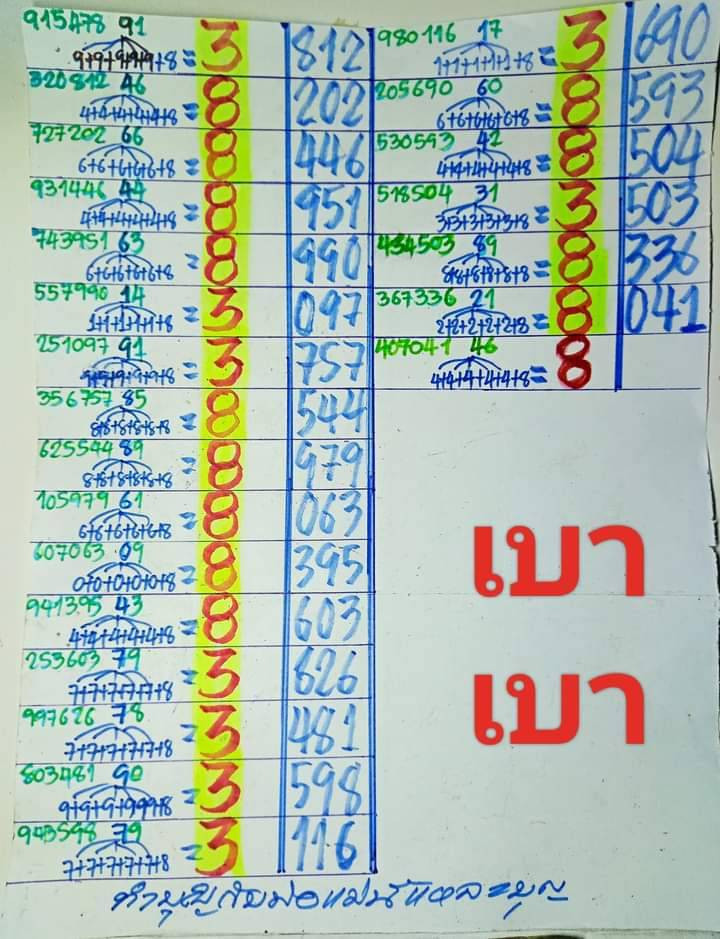 915478 91
9+9+9+9+9+8 = 3 812
320812 46
4+4+4+4+4+8 = 8 202
727202 66
6+6+6+6+6+8 = 8 446
931446 44
4+4+4+4+4+8 = 8 951
743951 63
6+6+6+6+6+8 = 8 990
557990 14
1+1+1+1+1+8 = 3 097
251097 91
9+9+9+9+9+8 = 3 757
356757 85
8+8+8+8+8+8 = 8 544
625544 89
8+8+8+8+8+8 = 8 979
105979 61
6+6+6+6+6+8 = 8 063
607063 09
0+0+0+0+0+8 = 8 395
941395 43
4+4+4+4+4+8 = 8 603
253603 79
7+7+7+7+7+8 = 3 626
997626 78
7+7+7+7+7+8 = 3 481
803481 90
9+9+9+9+9+8 = 3 598
943598 79
7+7+7+7+7+8 = 3 116
980116 17
1+1+1+1+1+8 = 3 690
205690 60
6+6+6+6+6+8 = 8 593
530593 42
4+4+4+4+4+8 = 8 504
518504 31
3+3+3+3+3+8 = 3 503
434503 89
8+8+8+8+8+8 = 8 336
367336 21
2+2+2+2+2+8 = 8 041
407041 46
4+4+4+4+4+8 = 8
เบา
เบา
ทำบุญกับพ่อแม่